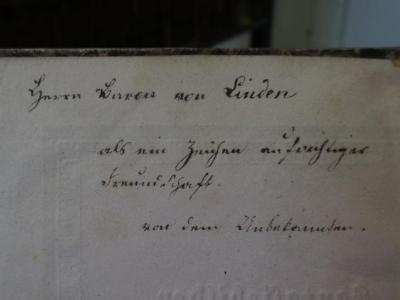 Herrn Baron von Linden
als ein Zeichen aufrichtiger
Freundschaft.
von dem Unbekannten.